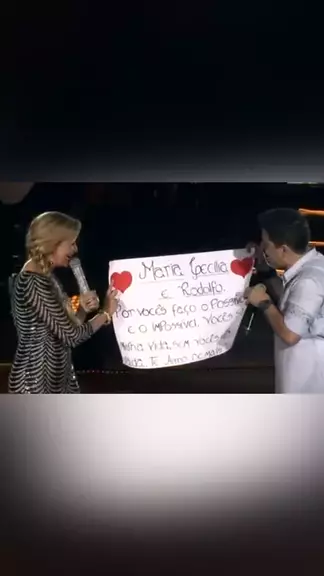 Maria Cecilia
e Rodolfo.
Por vocês faço o Possível
e o impossível. vocês
minha vida sem vocês
nada. Te Amo demais